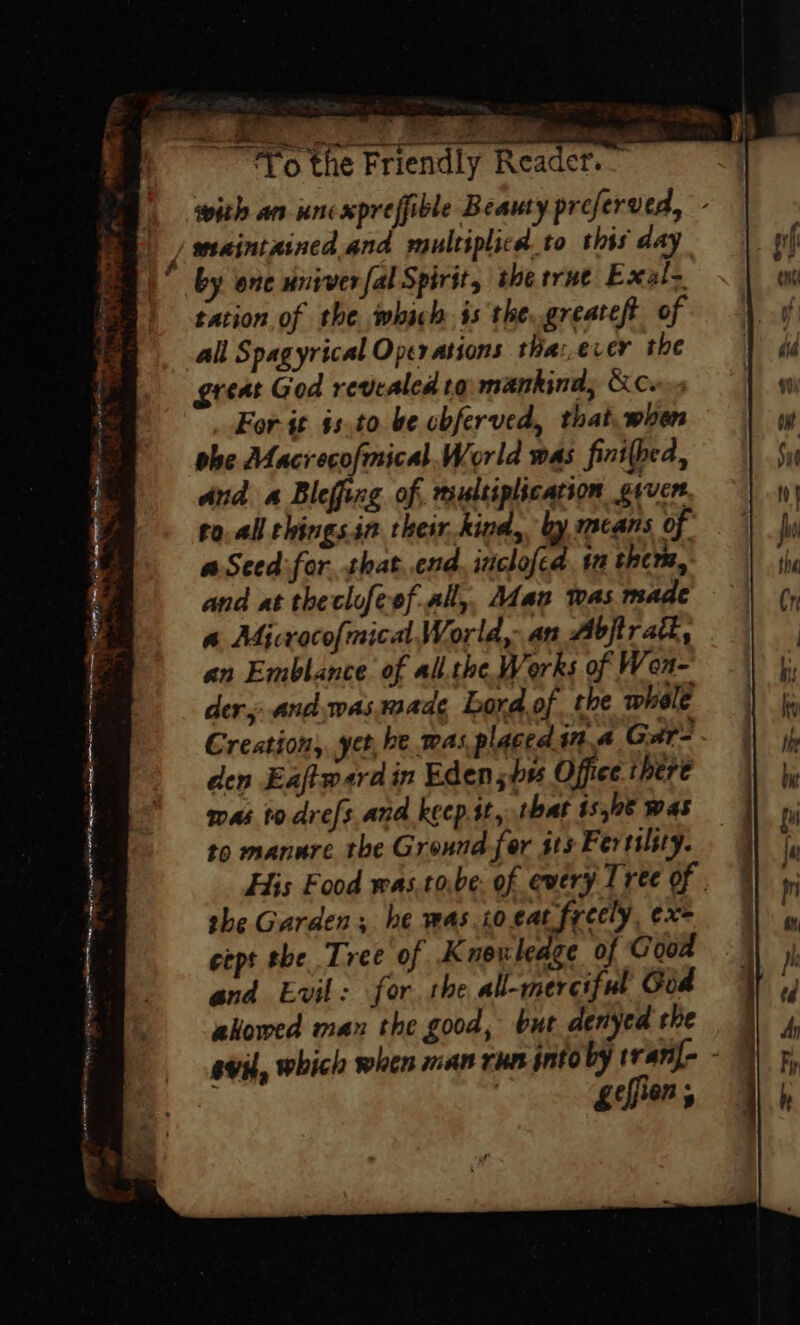 To the Friendly Reader.
with an unexpreſſible Beauty preſerved,
maintained and multiplied to this day
by one univerſal Spirit, the true Exal-
tation of the which is the greateſt of
all Spagyrical Operations that ever the
great God revealed to mankind, &c.
For it is to be obſerved, that when
the Macrocoſmical World was finiſhed,
and a Bleſſing of multiplication given
to all things in their kind, by means of
a Seed for that end incloſed in them,
and at the cloſe of all, Man was made
a Microcoſmical World, an Abſtract,
an Emblance of all the Works of Won-
der, and was made Lord of the whole
Creation, yet he was placed in a Gar-
den Eaſtward in Eden; his Office there
was to dreſs and keep it, that is, he was
to manure the Ground for its Fertility.
His Food was to be of every Tree of
the Garden; he was to eat freely, ex-
cept the Tree of Knowledge of Good
and Evil: for the all-merciful God
allowed man the good, but denyed the
evil, which when man run into by tranſ-
geſſion;